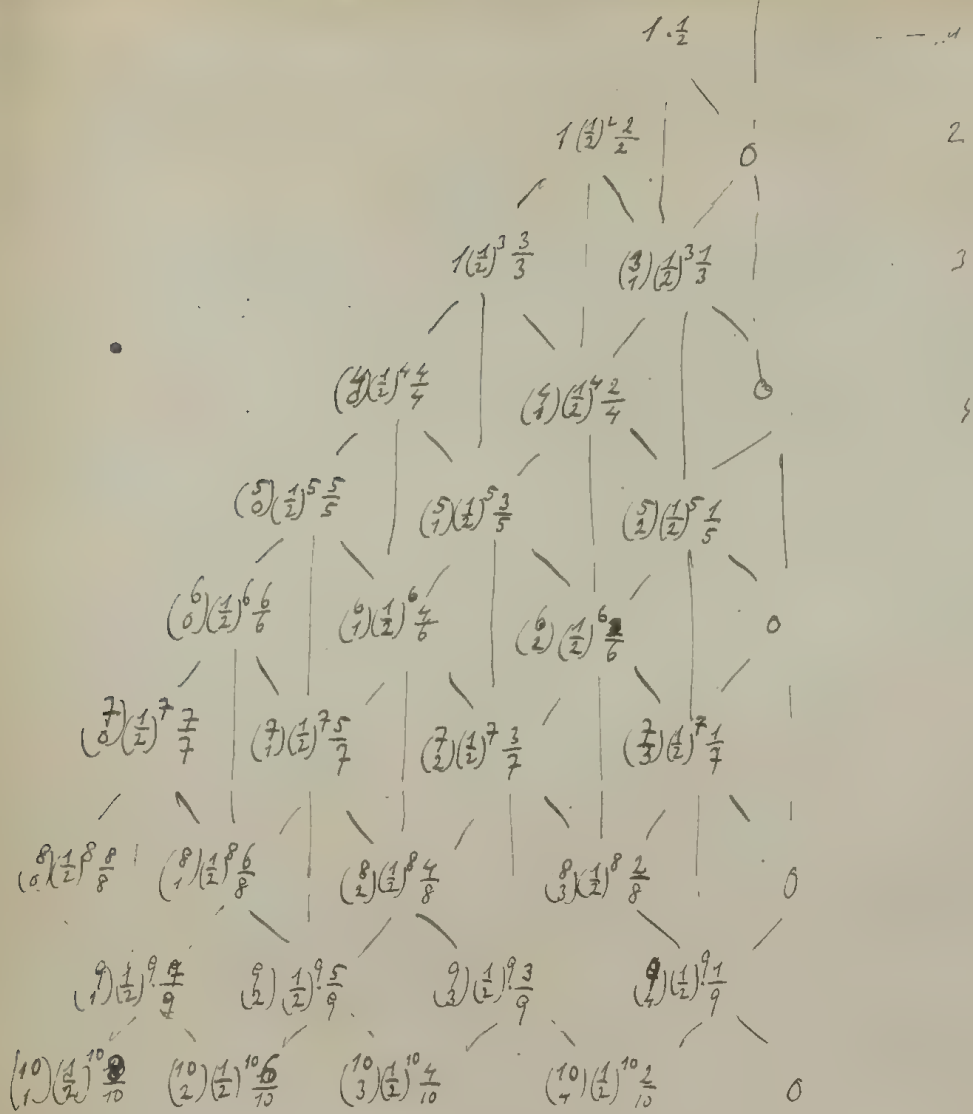 1·½ 1
1(½)² 2/2 0 2
1(½)³ 3/3 (3 1)(½)³ 1/3 3
(4 0)(½)⁴ 4/4 (4 1)(½)⁴ 2/4 0 4
(5 0)(½)⁵ 5/5 (5 1)(½)⁵ 3/5 (5 2)(½)⁵ 1/5
(6 0)(½)⁶ 6/6 (6 1)(½)⁶ 4/6 (6 2)(½)⁶ 2/6 0
(7 0)(½)⁷ 7/7 (7 1)(½)⁷ 5/7 (7 2)(½)⁷ 3/7 (7 3)(½)⁷ 1/7
(8 0)(½)⁸ 8/8 (8 1)(½)⁸ 6/8 (8 2)(½)⁸ 4/8 (8 3)(½)⁸ 2/8 0
(9 1)(½)⁹·7/9 (9 2)(½)⁹·5/9 (9 3)(½)⁹·3/9 (9 4)(½)⁹·1/9
(10 1)(½)¹⁰ 8/10 (10 2)(½)¹⁰ 6/10 (10 3)(½)¹⁰ 4/10 (10 4)(½)¹⁰ 2/10 0